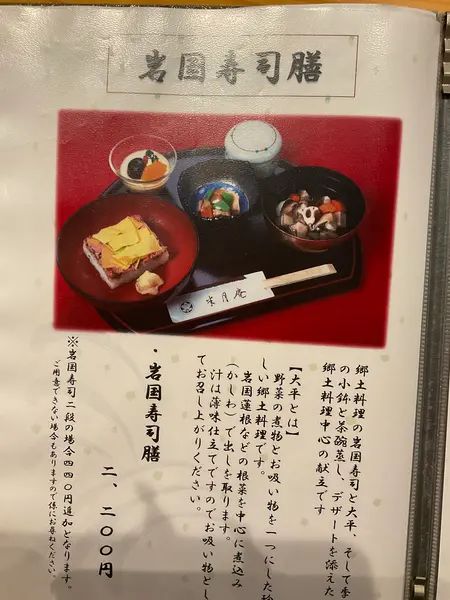 岩国寿司膳
半月庵
郷土料理の岩国寿司と大平、そして季
の小鉢と茶碗蒸し、デザートを添えた
郷土料理中心の献立です
【大平とは】
野菜の煮物とお吸い物を一つにした
しい郷土料理です。
岩国蓮根などの根菜を中心に煮込み
（かしわ）で出しを取ります。
汁は薄味仕立てですのでお吸い物とし
てお召し上がりください。
・岩国寿司膳
二、二〇〇円
※岩国寿司二段の場合四四〇円追加となります。
ご用意できない場合もありますので係にお尋ねください。